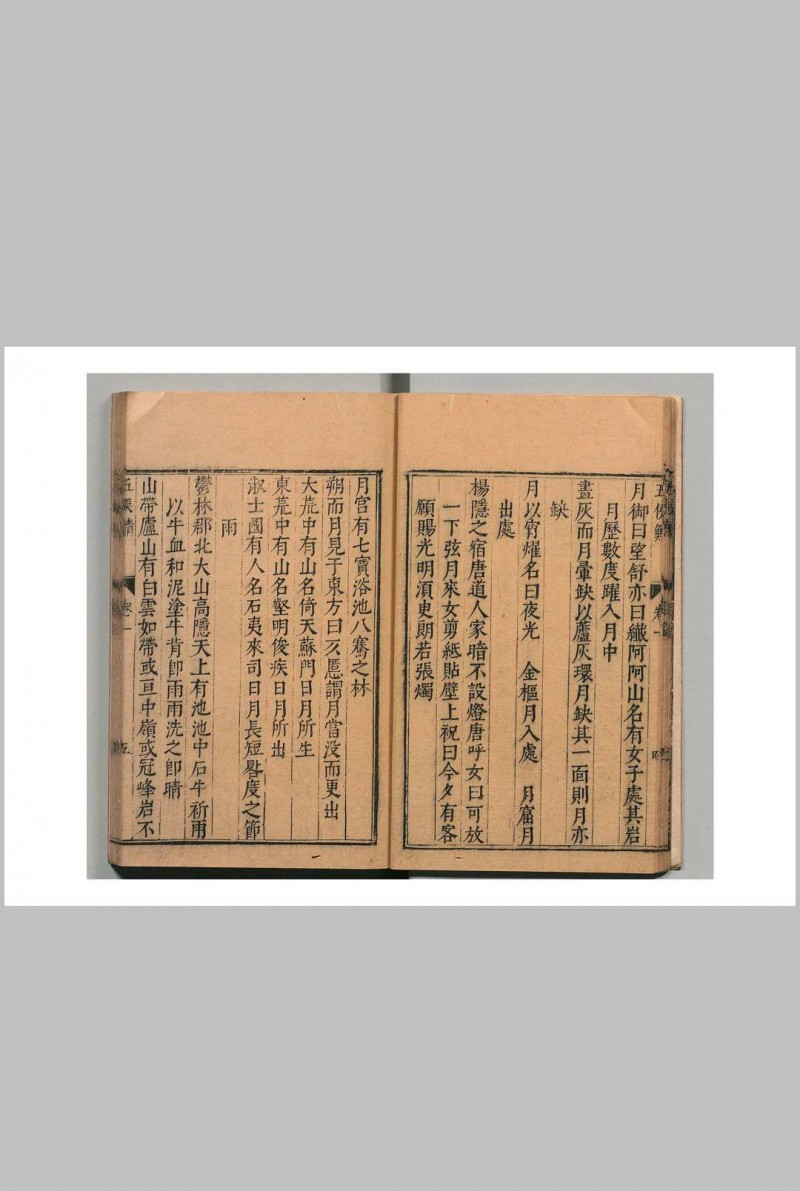 五侯鯖
卷一
月御曰望舒亦曰纖阿阿山名有女子處其岩
月歷數度躍入月中
畫灰而月暈缺以蘆灰環月缺其一面則月亦
缺
月以宵燿名曰夜光　金樞月入處　月窟月
出處
楊隱之宿唐道人家暗不設燈唐呼女曰可放
一下弦月來女剪紙貼壁上祝曰今夕有客
願賜光明湏臾朗若張燭
月宫有七寶浴池八騫之林
朔而月見于東方曰仄慝謂月當没而更出
大荒中有山名倚天蘇門日月所生
東荒中有山名壑明俊疾日月所出
淑士國有人名石夷來司日月長短晷度之節
雨
鬱林郡北大山高隱天上有池池中石牛祈雨
以牛血和泥塗牛背卽雨雨洗之卽晴
山帶廬山有白雲如帶或亘中嶺或冠峰岩不
五侯鯖
卷一
五